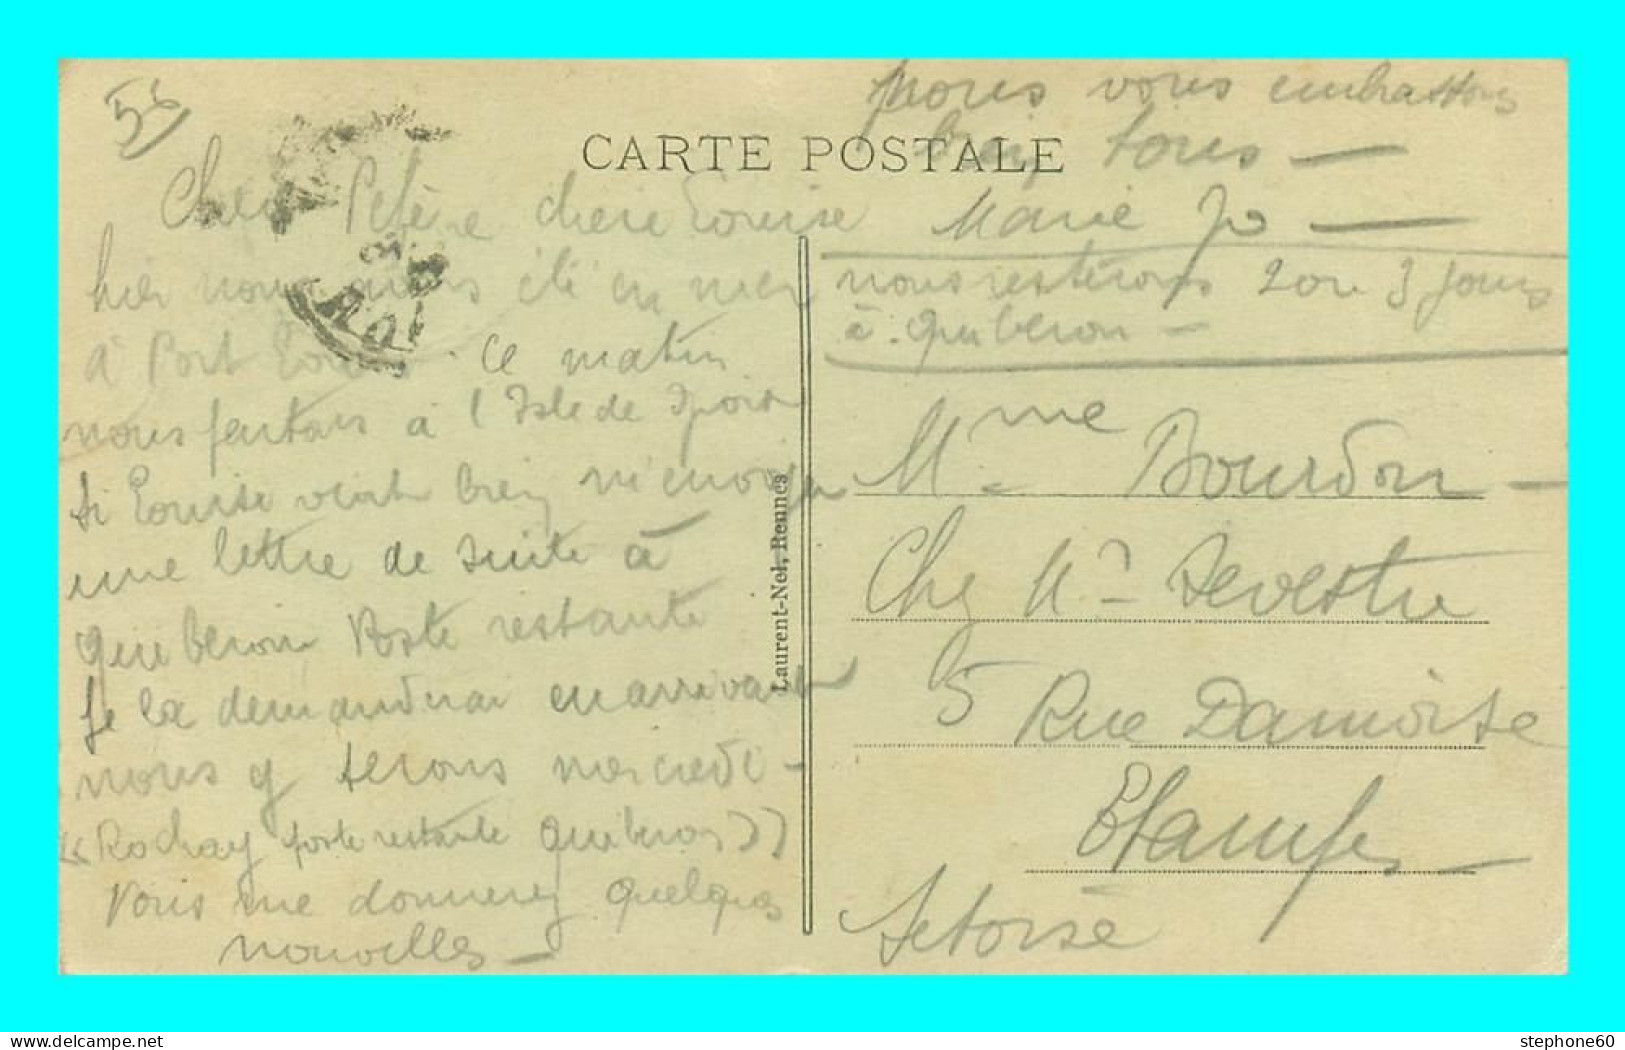 56
CARTE POSTALE
Cher chere Louise
hier nous avons été en mer
à Port Louis ce matin
nous partons à l Isle de
Si Louise veut bien m'envoyer
une lettre de suite à
Quiberon Poste restante
Je la demanderai en arrivant
nous y serons mercredi -
«Rochay poste restante Quiberon»
Vous me donnerez quelques
nouvelles -
nous vous embrassons
bien tous -
Marie Jo -
nous resterons 2 ou 3 jours
à Quiberon -
Mme Bourdon -
Chez Mr Sevestre
5 Rue Damoise
Etampes -
Set oise
Laurent-Nel, Rennes
stephone60